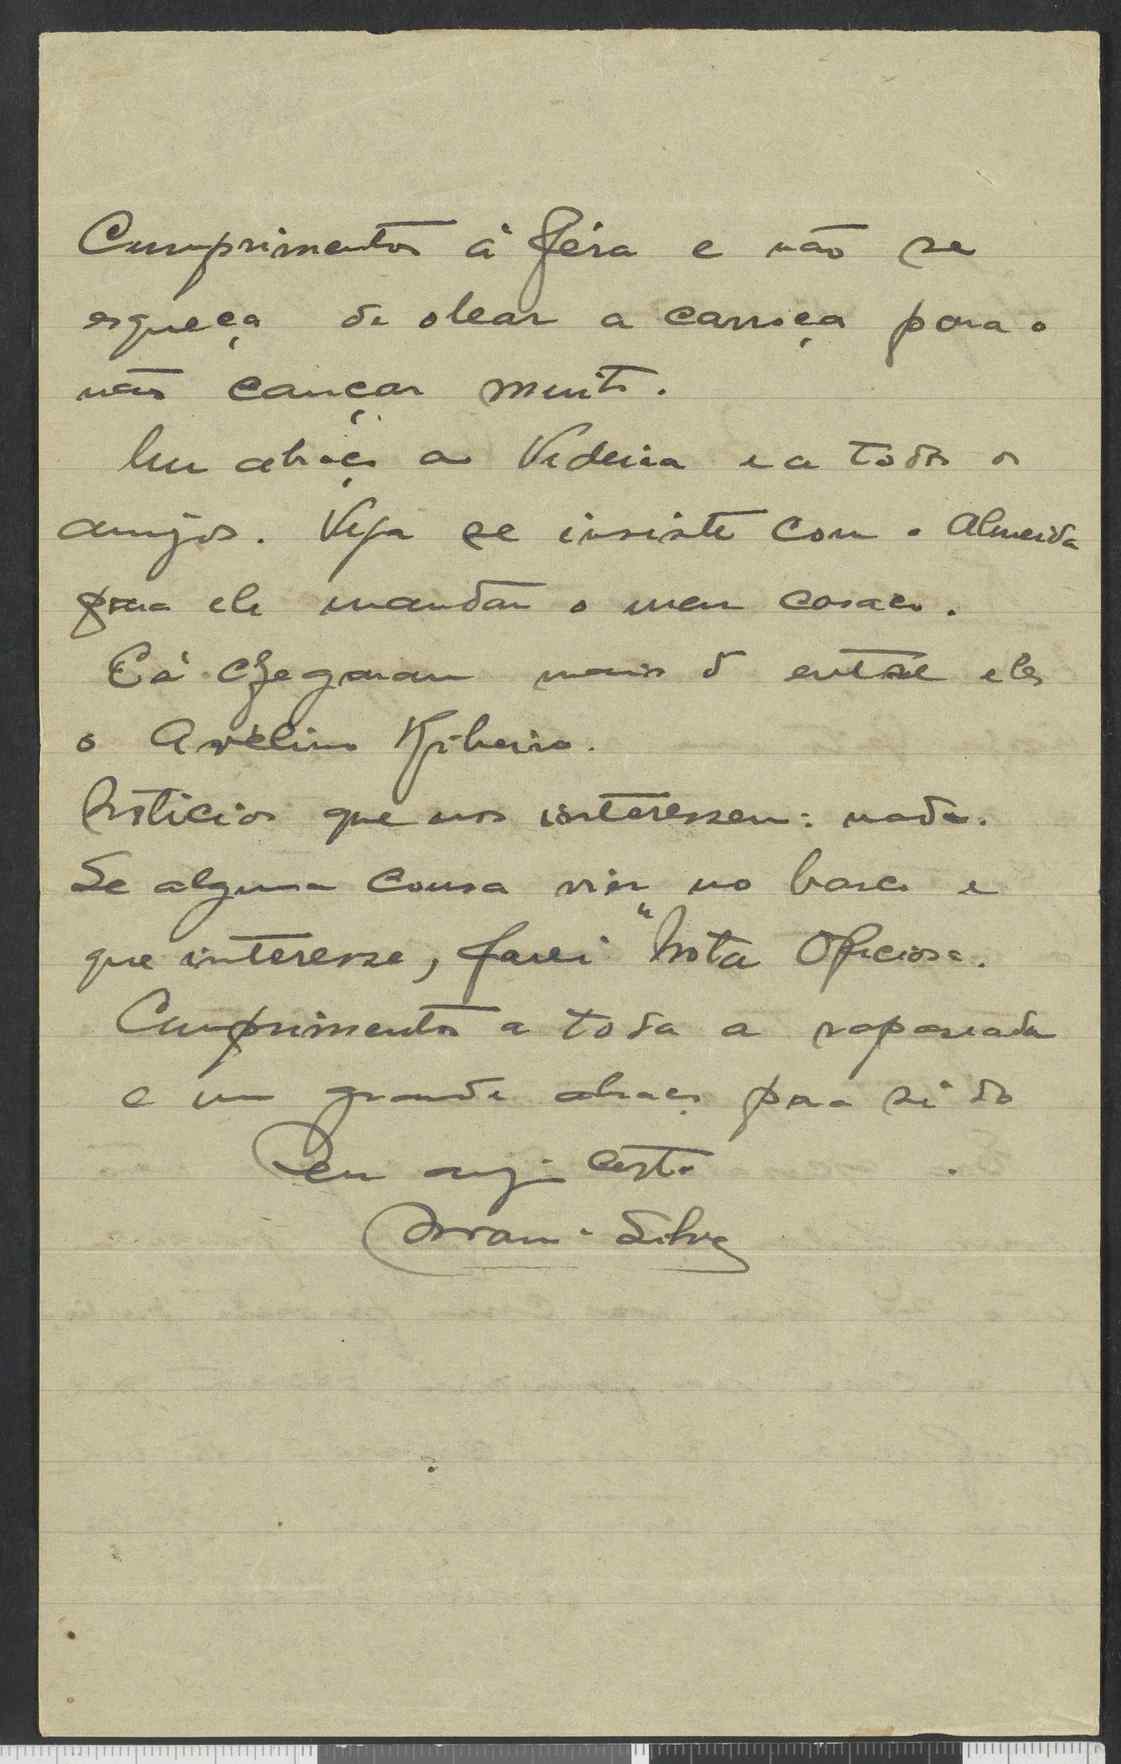 Cumprimentos á féra e não se
esqueça de olear a carroça para o
não cançar muito.
Um abraço ao Videira e a todos os
amigos. Veja se insiste com o Almeida
para ele mandar o meu casaco.
Cá chegaram mais 5 entre eles
o Avelino Ribeiro.
Noticias que nos interessem: nada.
Se alguma cousa vier no barco e
que interesse, farei "Nota Oficiosa.
Cumprimentos a toda a rapaziada
e um grande abraço para si do
Seu amigo certo
Silva